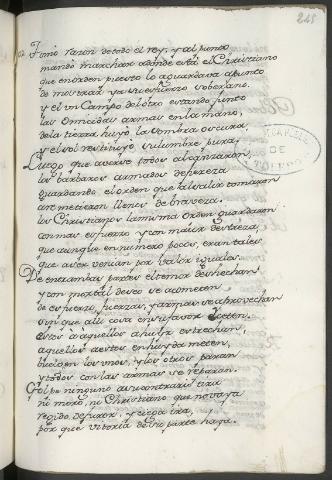 215
Tomó razon de todo el rey, y al punto
mandó marchar adonde está el Christiano
que en orden puesto lo aguardava apunto
de mostrar ya su esfuerzo soberano.
y el un Campo del otro estando junto
las Omicidas armas en la mano,
de la tierra huyó la sombra oscura,
y el sol restituyó su lumbre pura.
Luego que a verse todos alcanzaron,
los bárbaros armados de fiereza
guardando el orden que al salir tomaron
arremetieron llenos de braveza.
los Christianos la misma orden guardaron
con mas esfuerzo y con maior destreza,
que aunque en número pocos, eran tales
que a ser venian por valor iguales.
De entrambas partes el temor deshechan
y con mortal deseo se acometen
de esfuerzo, fuerzas, y armas se aprovechan
sin que allí cosa en su favor
estos a aquellos a huir estrechan,
aquellos a estos en huyda meten,
buelven los unos, y los otros paran
y todos con las armas se reparan.
Golpe ninguno a su contrario tira
ni moro, ni Christiano que no vaya
regido de furor, y ciega ira,
por que vitoria de su parte haya.
BIBLIOTECA PUBLICA
DE
TOLEDO